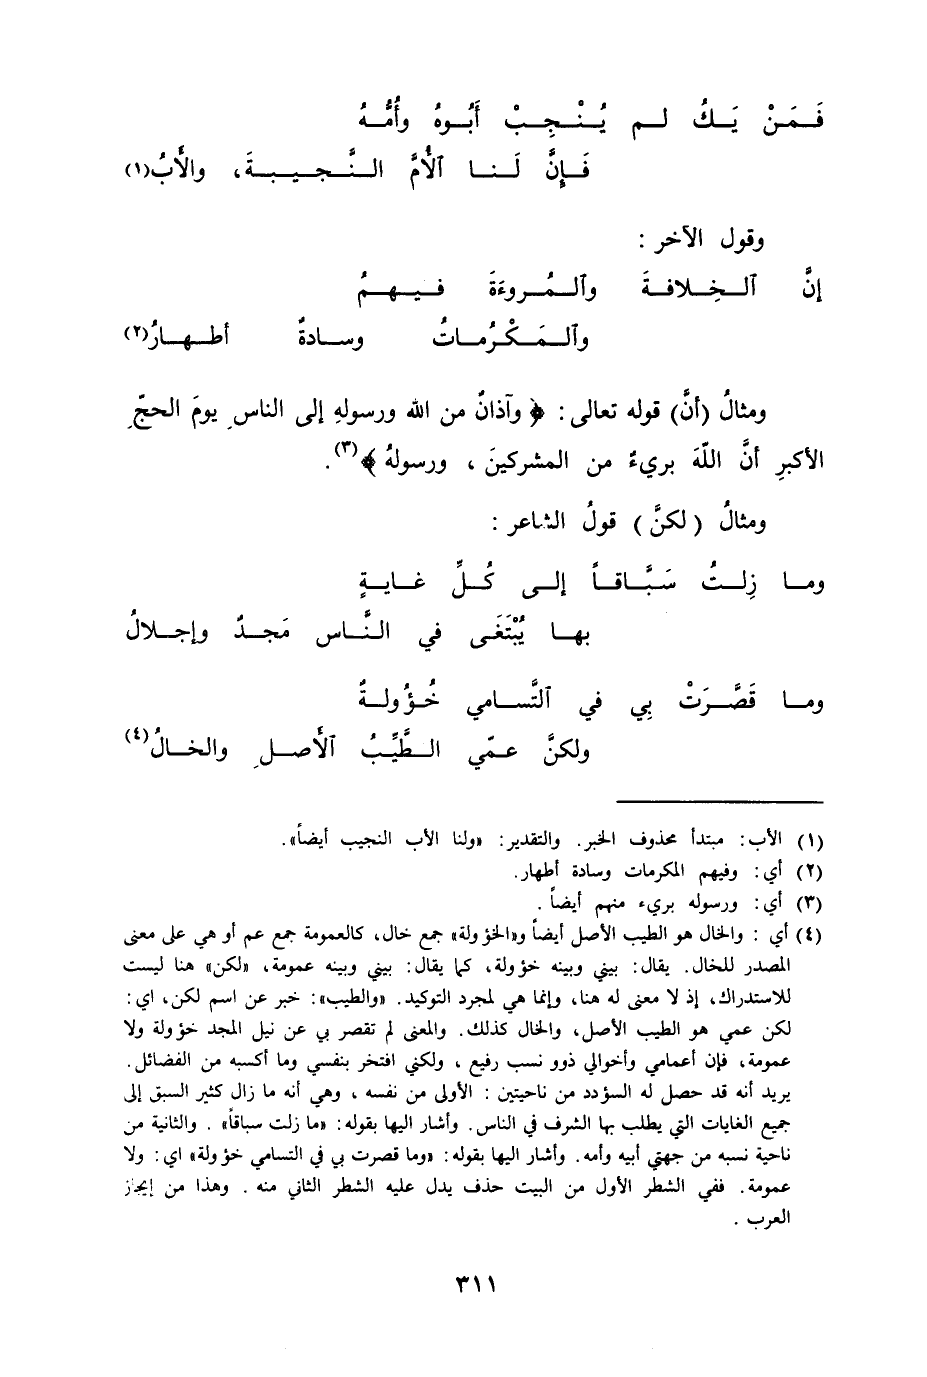 فَمَنْ يَكُ لم يُنْجِبْ أَبُوهُ وأُمُّهُ
فَإِنَّ لَنا ٱلأُمَّ النَّجيبةَ، والأَبُ(١)
وقول الآخر :
إنَّ ٱلخِلافةَ وٱلمُروءَةَ فيهمُ
وٱلمَكْرُماتُ وسادةٌ أطهارُ(٢)
ومثالُ (أنَّ) قوله تعالى: ﴿ وآذانٌ من الله ورسولهِ إلى الناسِ يومَ الحجِّ
الأكبرِ أنَّ اللّهَ بريءٌ من المشركينَ ، ورسولهُ ﴾(٣).
ومثالُ (لكنَّ) قولُ الشاعر :
وما زِلتُ سَبَّاقاً إلى كُلِّ غايةٍ
بها يُبْتَغَى في النَّاس مَجدٌ وإجلالُ
وما قَصَّرَتْ بِي في ٱلتَّسامي خُؤُولةٌ
ولكنَّ عمّي الطَّيِّبُ ٱلأَصلِ والخالُ(٤)
(١) الأب: مبتدأ محذوف الخبر. والتقدير: «ولنا الأب النجيب أيضاً».
(٢) أي: وفيهم المكرمات وسادة أطهار.
(٣) أي: ورسوله بريء منهم أيضاً .
(٤) أي : والخال هو الطيب الأصل أيضاً و«الخؤولة» جمع خال، كالعمومة جمع عم أو هي على معنى
المصدر للخال. يقال: بيني وبينه خؤولة، كما يقال: بيني وبينه عمومة، «لكن» هنا ليست
للاستدراك، إذ لا معنى له هنا، وإنما هي لمجرد التوكيد. «والطيب»: خبر عن اسم لكن، اي:
لكن عمي هو الطيب الأصل، والخال كذلك. والمعنى لم تقصر بي عن نيل المجد خؤولة ولا
عمومة، فإن أعمامي وأخوالي ذوو نسب رفيع ، ولكني افتخر بنفسي وما أكسبه من الفضائل.
يريد أنه قد حصل له السؤدد من ناحيتين : الأولى من نفسه ، وهي أنه ما زال كثير السبق إلى
جميع الغايات التي يطلب بها الشرف في الناس. وأشار اليها بقوله: «ما زلت سباقاً» . والثانية من
ناحية نسبه من جهتي أبيه وأمه. وأشار اليها بقوله: «وما قصرت بي في التسامي خؤولة» اي: ولا
عمومة. ففي الشطر الأول من البيت حذف يدل عليه الشطر الثاني منه . وهذا من إيجاز
العرب .
٣١١